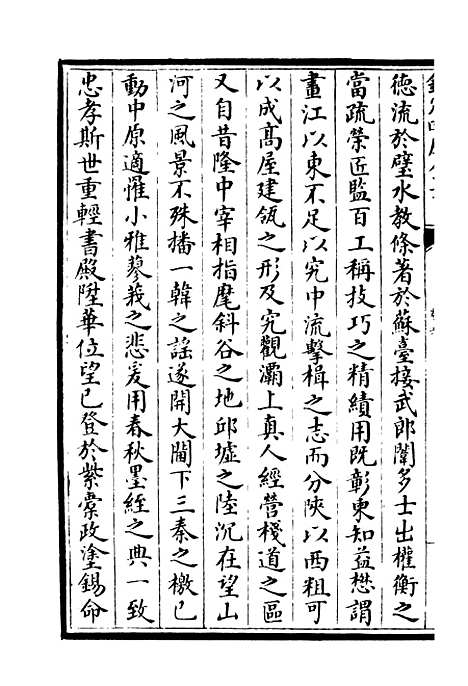 德流於璧水教條著於蘇臺接武郎闈多士出權衡之
當疏榮匠監百工稱技巧之精績用既彰柬知益懋謂
畫江以東不足以究中流擊楫之志而分陝以西粗可
以成高屋建瓴之形及究觀灞上真人經營棧道之區
又自昔隆中宰相指麾斜谷之地邱墟之陸沉在望山
河之風景不殊播一韓之謡遂開大閫下三秦之檄已
動中原適罹小雅蓼莪之悲爰用春秋墨絰之典一致
忠孝斯世重輕書殿陞華位望已登於紫槖政塗錫命